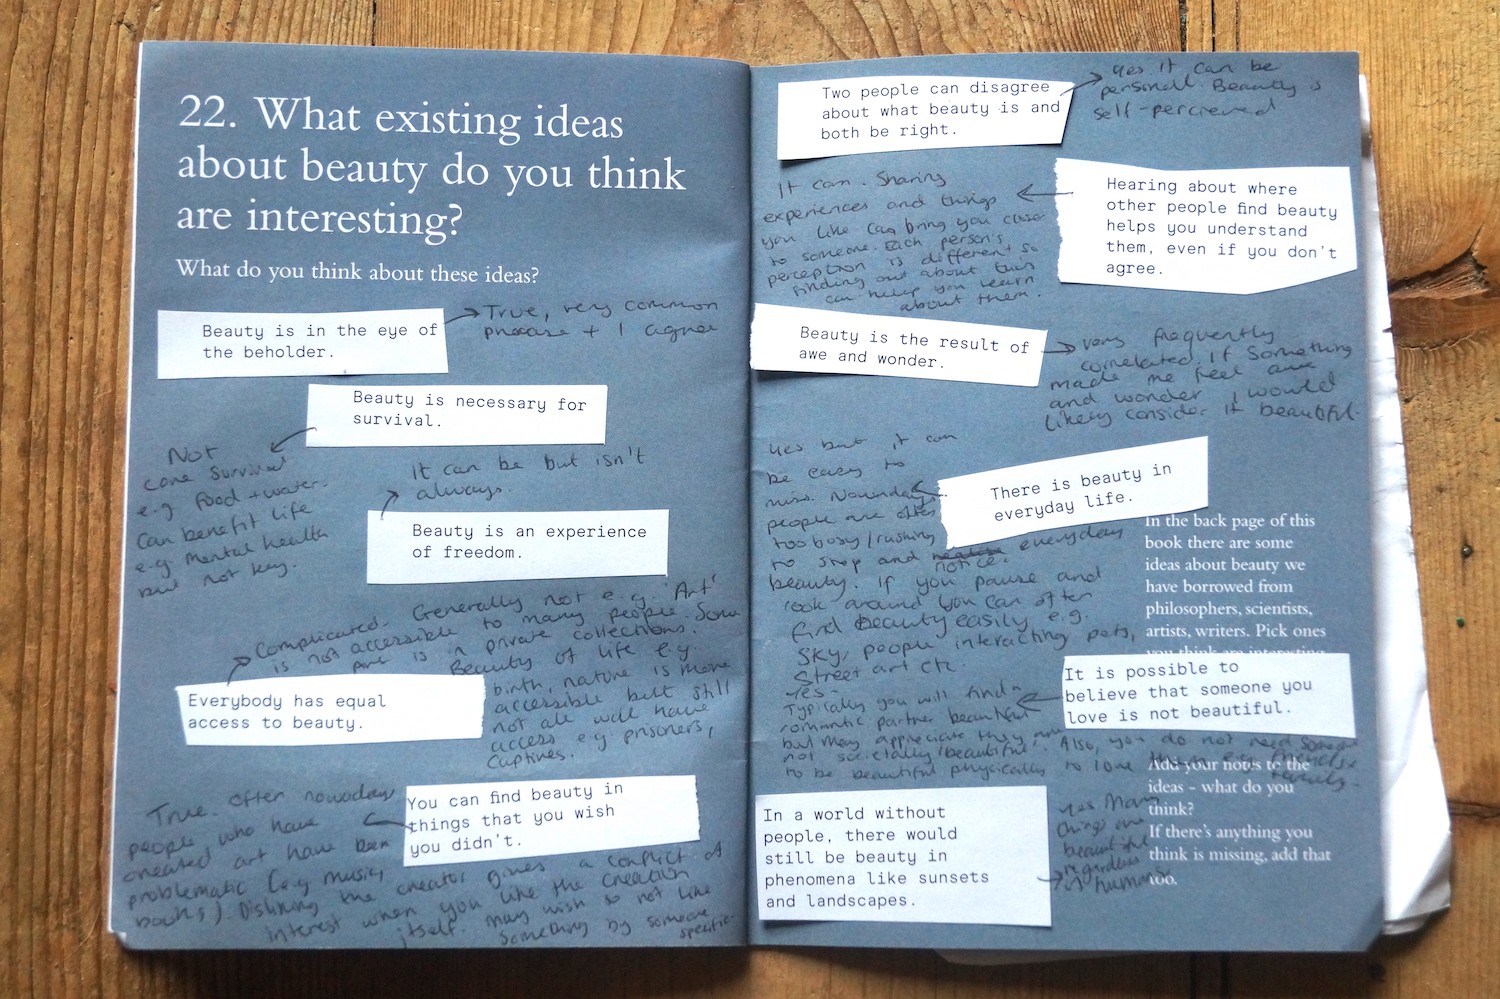 22. What existing ideas
about beauty do you think
are interesting?
What do you think about these ideas?
Beauty is in the eye of
the beholder.
True, very common
phrase + I agree
Beauty is necessary for
survival.
Not
core survival
e.g food + water.
Can benefit life
e.g mental health
but not key.
It can be but isn't
always.
Beauty is an experience
of freedom.
Complicated. Generally not e.g. 'Art'
is not accessible to many people. Some
Art is in private collections.
Beauty of life e.g.
birth, nature is more
accessible but still
not all will have
access e.g. prisoners,
captives.
Everybody has equal
access to beauty.
You can find beauty in
things that you wish
you didn't.
True. Often nowadays
people who have
created art have been
problematic (e.g music,
books). Disliking the creator gives a conflict of
interest when you like the creation
itself. May wish to not like
something by someone
specific.
Two people can disagree
about what beauty is and
both be right.
Yes it can be
personal. Beauty is
self-percieved
Hearing about where
other people find beauty
helps you understand
them, even if you don't
agree.
It can. Sharing
experiences and things
you like can bring you closer
to someone. Each person's
perception is different so
finding out about this
can help you learn
about them.
Beauty is the result of
awe and wonder.
very frequently
correlated. If something
made me feel awe
and wonder I would
likely consider it beautiful.
There is beauty in
everyday life.
Yes but it can
be easy to
miss. Nowadays
people are often
too busy/rushing
to stop and notice everyday
beauty. If you pause and
look around you can often
find beauty easily e.g.
Sky, people interacting, pets,
Street art etc.
In the back page of this
book there are some
ideas about beauty we
have borrowed from
philosophers, scientists,
artists, writers. Pick ones
you think are interesting
It is possible to
believe that someone you
love is not beautiful.
Yes-
Typically you will find a
romantic partner beautiful
but may appreciate they
not societally 'beautiful'. Also, you do not need someone
to be beautiful physically to love them e.g.
In a world without
people, there would
still be beauty in
phenomena like sunsets
and landscapes.
Yes Many
things are
beautiful
regardless
of humans
Add your notes to the
ideas – what do you
think?
If there's anything you
think is missing, add that
too.